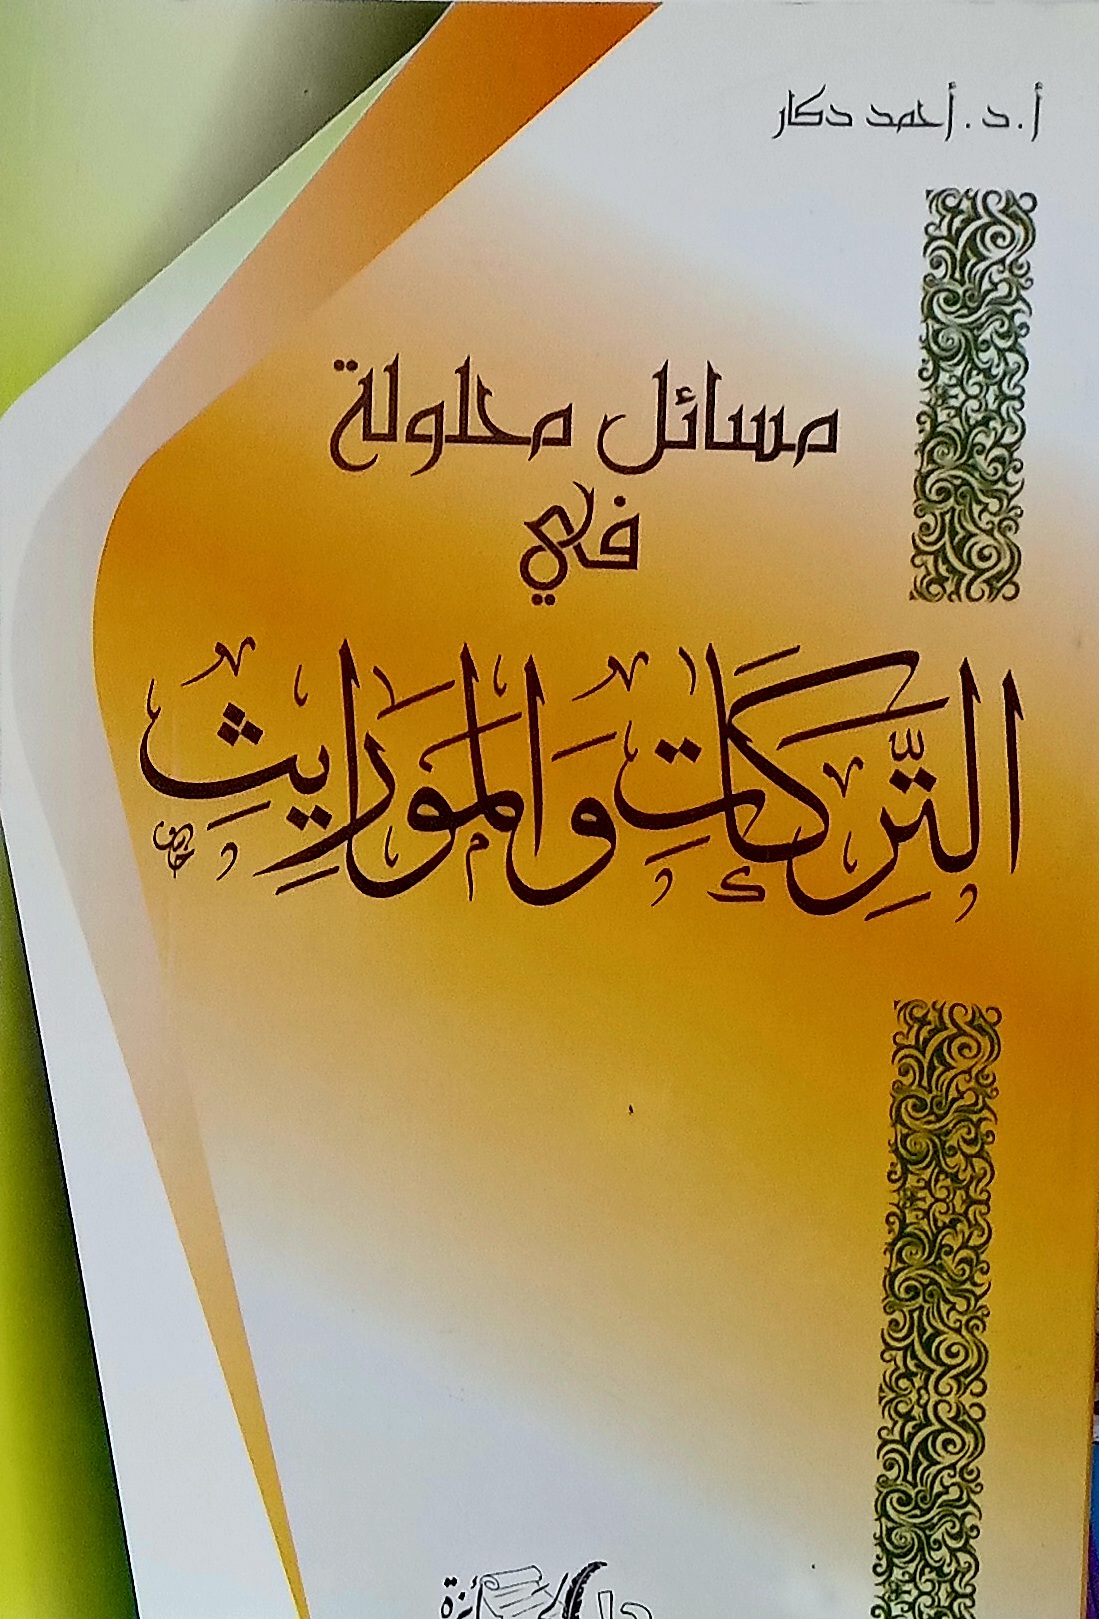 أ.د.أحمد دكار
مسائل محلولة
في
التِّرِكَاتِ وَالمَوَارِيثِ